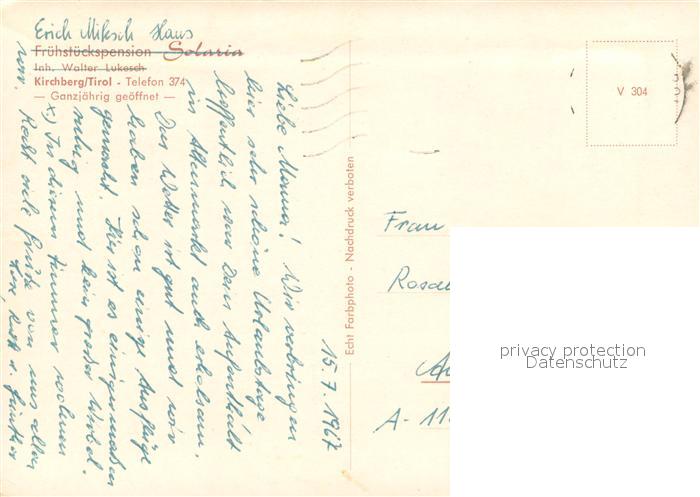 Erich Mikesch Haus
Frühstückspension Solaria
Inh. Walter Lukesch
Kirchberg/Tirol - Telefon 374
— Ganzjährig geöffnet —
15.7.1967
Liebe Mama! Wir verbringen
hier sehr schöne Urlaubstage
hoffentlich war Dein Aufenthalt
in Altenmarkt auch erholsam.
Das Wetter ist gut und wir
haben schon einige Ausflüge
gemacht. Hier ist es einigermaßen
ruhig und kein großer Wirbel.
x.) In diesem Zimmer wohnen
wir.
Recht viele Grüße von uns allen
Echt Farbphoto - Nachdruck verboten
V 304
Frau
Rosa
A-11
privacy protection
Datenschutz